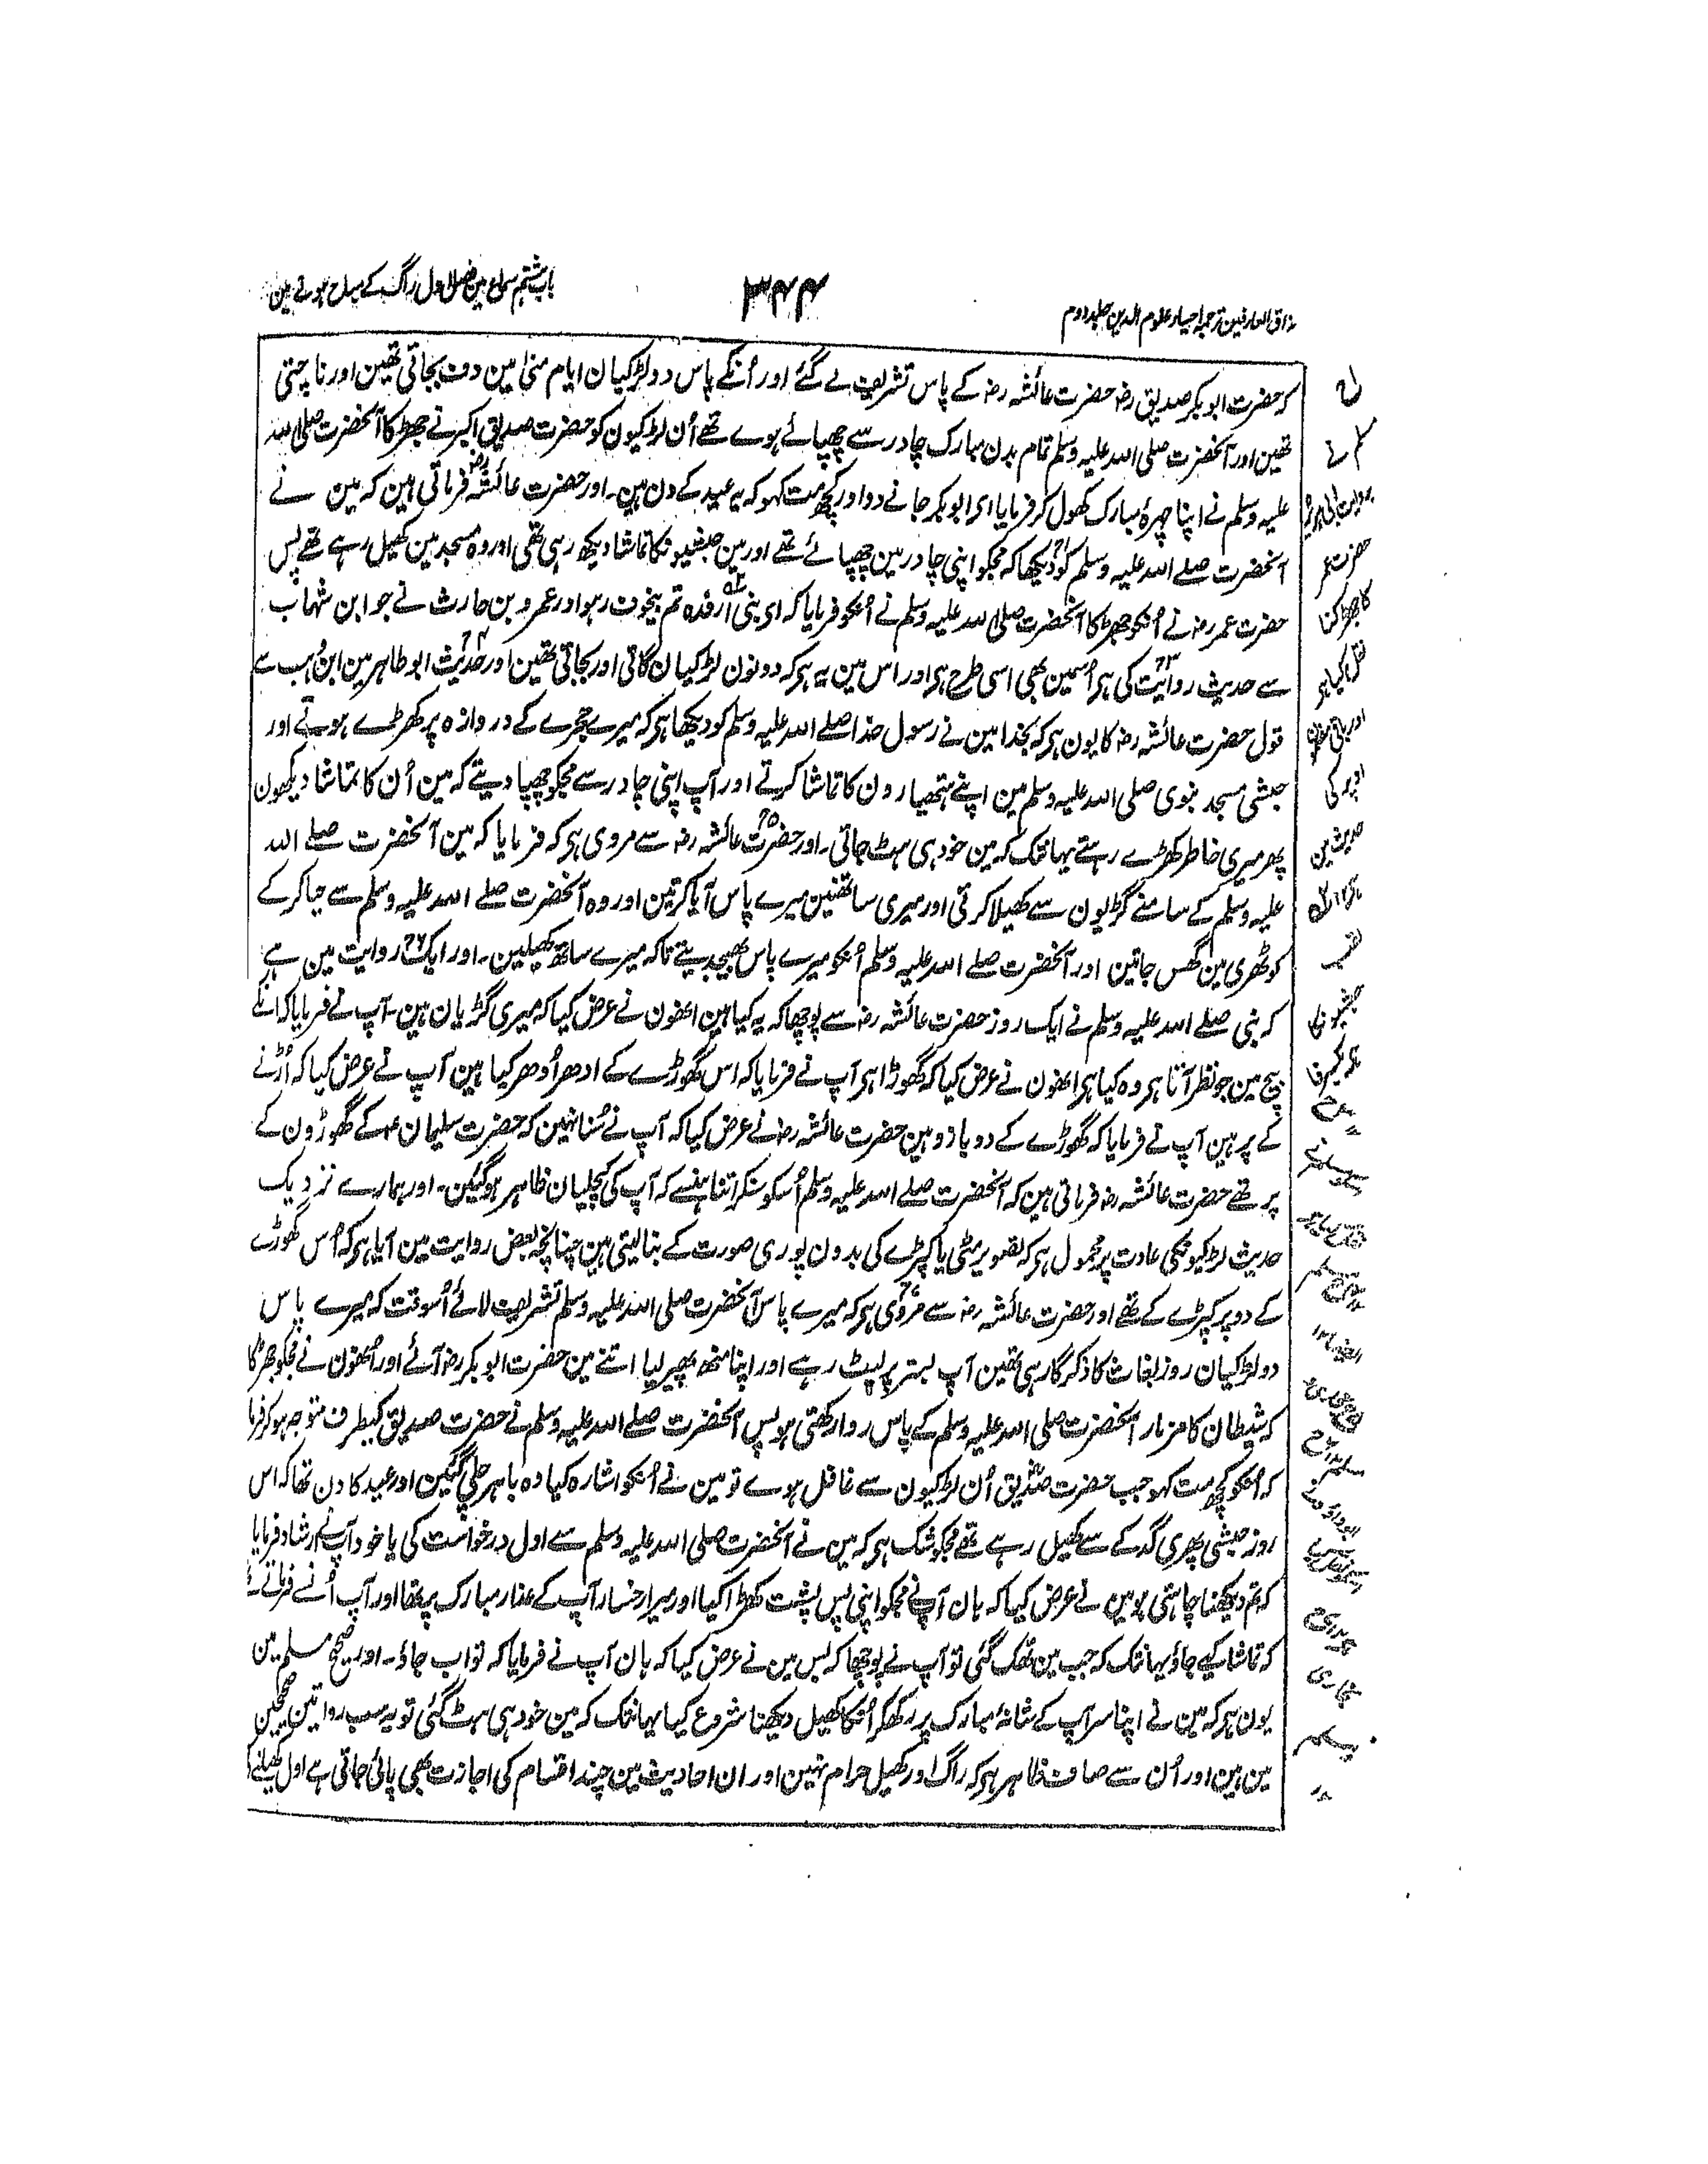 باب ہشتم سماع مین فصل اول راگ کے مباح ہونے مین
۳۴۴
مذاق العارفین ترجمہ احیاء علوم الدین جلد دوم
کہ حضرت ابوبکر صدیق رضہ حضرت عائشہ رضہ کے پاس تشریف لے گئے اور اُنکے پاس دو لڑکیان ایام منیٰ مین دف بجاتی تھین اور ناچتی
تھین اور آنحضرت صلی اللہ علیہ وسلم تمام بدن مبارک چادر سے چھپائے ہوے تھے اُن لڑکیون کو حضرت صدیق اکبر نے جھڑکا آنحضرت صلی اللہ
علیہ وسلم نے اپنا چہرۂ مبارک کھول کر فرمایا ای ابوبکر جانے دو اور کچھ مت کہو کہ یہ عید کے دن ہین۔ اور حضرت عائشہ رضہ فرماتی ہین کہ مین نے
آنحضرت صلے اللہ علیہ وسلم کو دیکھا کہ مجکو اپنی چادر مین چھپائے تھے اور مین حبشیونکا تماشا دیکھ رہی تھی اور وہ مسجد مین کھیل رہے تھے پس
حضرت عمر رضہ نے اُنکو جھڑکا آنحضرت صلی اللہ علیہ وسلم نے اُنکو فرمایا کہ ای بنی ارفدہ تم بیخوف رہو اور عمرو بن حارث نے جو ابن شہاب
سے حدیث روایت کی ہر اُسمین بھی اسی طرح ہر اور اس مین یہ ہر کہ دونون لڑکیان گاتی اور بجاتی تھین اور حدیث ابو طاہر مین ابن وہب سے
قول حضرت عائشہ رضہ کا یون ہر کہ بخدا مین نے رسول خدا صلے اللہ علیہ وسلم کو دیکھا ہر کہ میرے حجرے کے دروازہ پر کھڑے ہوتے اور
حبشی مسجد نبوی صلی اللہ علیہ وسلم مین اپنے ہتھیارون کا تماشا کرتے اور آپ اپنی چادر سے مجکو چھپا دیتے کہ مین اُن کا تماشا دیکھون
پھر میری خاطر کھڑے رہتے یہانتک کہ مین خود ہی ہٹ جاتی۔ اور حضرت عائشہ رضہ سے مروی ہر کہ فرمایا کہ مین آنحضرت صلے اللہ
علیہ وسلم کے سامنے گڑیون سے کھیلا کرتی اور میری ساتھنین میرے پاس آیا کرتین اور وہ آنحضرت صلے اللہ علیہ وسلم سے حیا کر کے
کوٹھری مین گھس جاتین اور آنحضرت صلے اللہ علیہ وسلم اُنکو میرے پاس بھیجدیتے تاکہ میرے ساتھ کھیلین۔ اور ایک روایت مین ہے
کہ نبی صلے اللہ علیہ وسلم نے ایک روز حضرت عائشہ رضہ سے پوچھا کہ یہ کیا ہین انھون نے عرض کیا کہ میری گڑیان ہین۔ آپ نے فرمایا کہ انکے
بیچ مین جو نظر آتا ہر وہ کیا ہر انھون نے عرض کیا کہ گھوڑا ہر آپ نے فرمایا کہ اس گھوڑے کے ادھر اُدھر کیا ہین آپ نے عرض کیا کہ اُڑنے
کے پر ہین آپ نے فرمایا کہ گھوڑے کے دو بازو ہین حضرت عائشہ رضہ نے عرض کیا کہ آپ نے سُنا نہین کہ حضرت سلیمان ع کے گھوڑون کے
پر تھے حضرت عائشہ رضہ فرماتی ہین کہ آنحضرت صلے اللہ علیہ وسلم اُسکو سنکر اتنا ہنسے کہ آپ کی کچلیان ظاہر ہوگئین۔ اور ہمارے نزدیک
حدیث لڑکیونکی عادت پر محمول ہر کہ تصویر مٹی یا کپڑے کی بدون پوری صورت کے بنالیتی ہین چنانچہ بعض روایت مین آیا ہر کہ اُس گھوڑے
کے دو پر کپڑے کے تھے اور حضرت عائشہ رضہ سے مروی ہر کہ میرے پاس آنحضرت صلی اللہ علیہ وسلم تشریف لائے اُسوقت کہ میرے پاس
دو لڑکیان روز بغاث کا ذکر گا رہی تھین آپ بستر پر لیٹ رہے اور اپنا منھ پھیر لیا اتنے مین حضرت ابوبکر رضہ آئے اور اُنھون نے مجکو جھڑکا
کہ شیطان کا مزمار آنحضرت صلی اللہ علیہ وسلم کے پاس روا رکھتی ہو پس آنحضرت صلے اللہ علیہ وسلم نے حضرت صدیق کیطرف متوجہ ہو کر فرما
کہ اُنکو کچھ مت کہو جب حضرت صدیق اُن لڑکیون سے غافل ہوے تو مین نے اُنکو اشارہ کیا وہ باہر چلی گئین اور عید کا دن تھا کہ اس
روز حبشی پھری گدکے سے کھیل رہے تھے مجکو شک ہر کہ مین نے آنحضرت صلی اللہ علیہ وسلم سے اول درخواست کی یا خود آپ نے ارشاد فرمایا
کہ تم دیکھنا چاہتی ہو مین نے عرض کیا کہ ہان آپ نے مجکو اپنی پس پشت کھڑا کیا اور میرا رخسار آپ کے عذار مبارک پر تھا اور آپ اُنسے فرماتے
کہ تماشا کیے جاؤ یہانتک کہ جب مین تھک گئی تو آپ نے پوچھا کہ بس مین نے عرض کیا کہ ہان آپ نے فرمایا کہ تو اب جاؤ۔ اور صحیح مسلم مین
یون ہر کہ مین نے اپنا سر آپ کے شانۂ مبارک پر رکھکر اُنکا کھیل دیکھنا شروع کیا یہانتک کہ مین خود ہی ہٹ گئی تو یہ سب روایتین صحیحین
مین ہین اور اُن سے صاف ظاہر ہر کہ راگ اور کھیل حرام نہین اور ان احادیث مین چند اقسام کی اجازت بھی پائی جاتی ہے اول کھیلنے
مسلم نے
حضرت عمر
کا جھڑکنا
نقل کیا ہر
اوپر کی
حدیثین
بخاری
مسلم